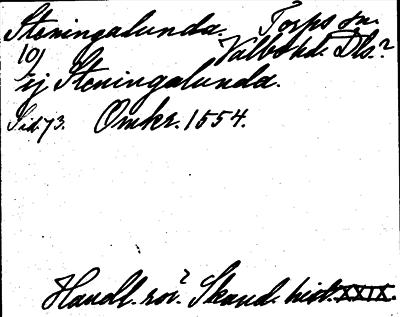 Steningalunda. Torps sn.
Valbo hd. Dls.?
10/
ej Steningalunda.
Sid. 73. Omkr. 1554.
Handl. rör. Skand. hist. XXIX.